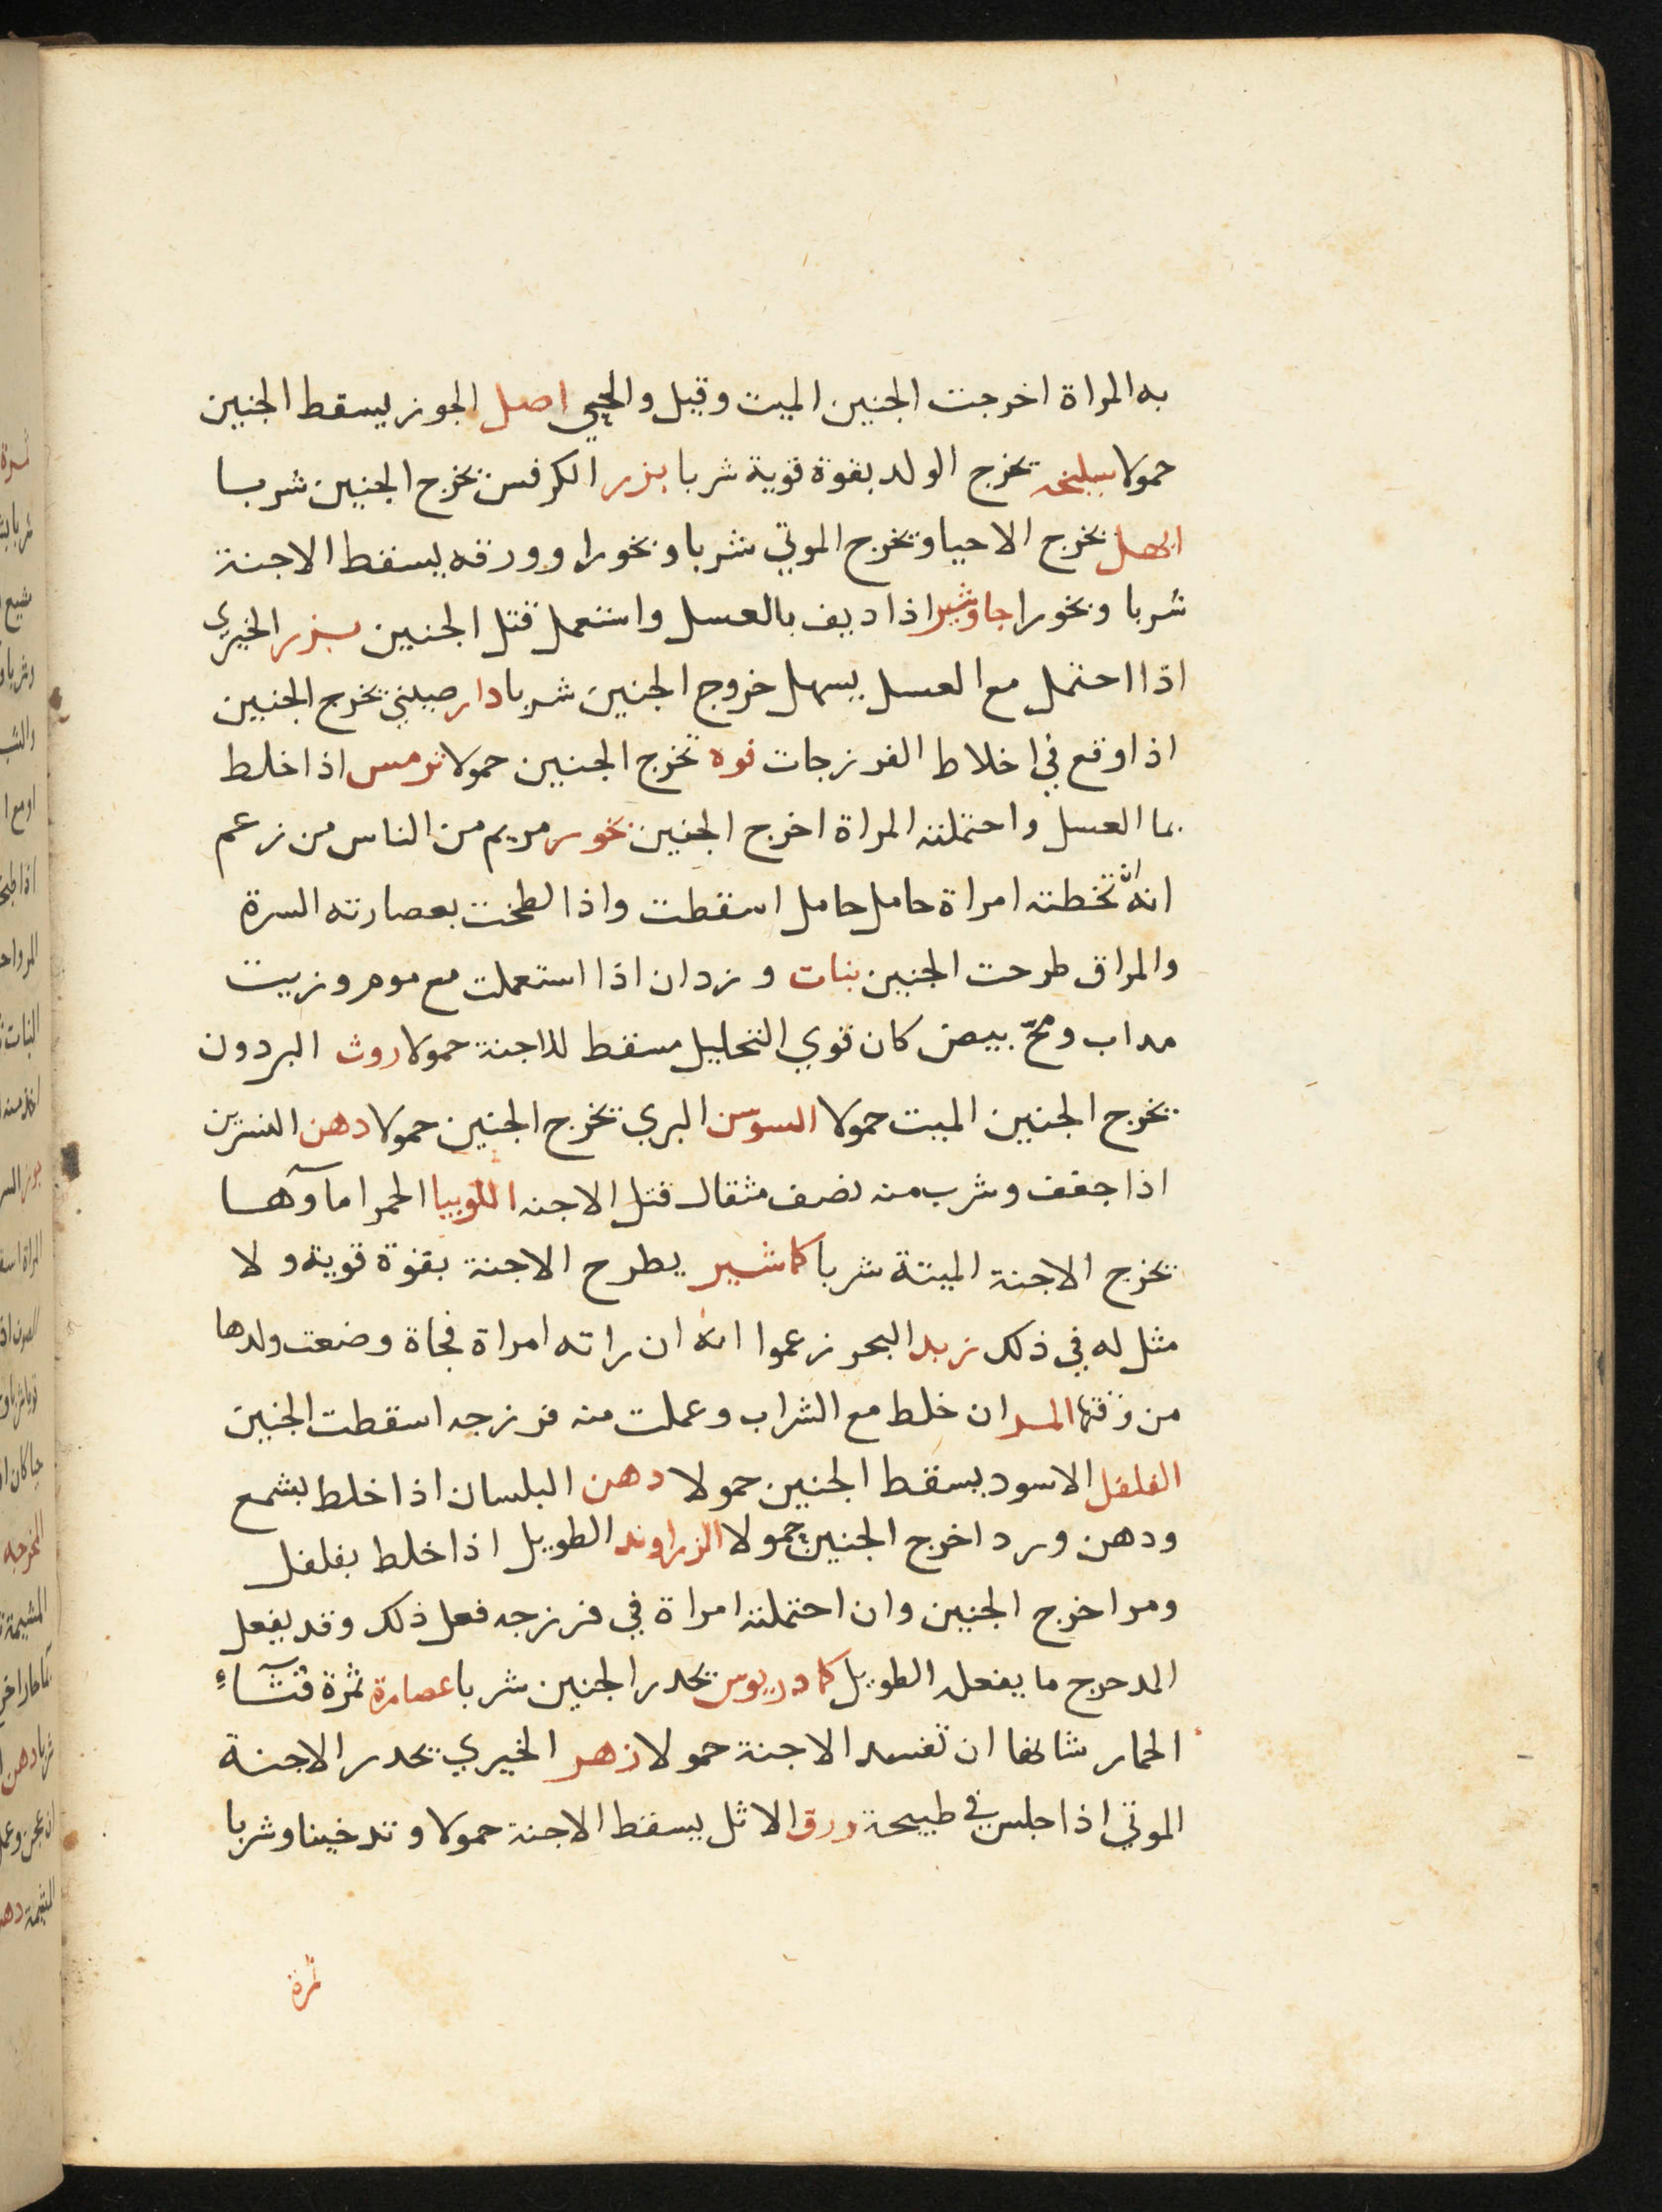 به المراة اخرجت الجنين الميت وقيل والحيي اصل الجوز يسقط الجنين
حمولا سليخه تخرج الولد بقوة قوية شربا بزر الكرفس تخرج الجنين شربا
ابهل يخرج الاحيا ويخرج الموتي شربا وبخورا وورقه يسقط الاجنة
شربا وبخورا جاوشير اذا ديف بالعسل واستعمل قتل الجنين بزر الخيري
اذا احتمل مع العسل يسهل خروج الجنين شربا دار صيني تخرج الجنين
اذا وقع في اخلاط الفرزجات فوه تخرج الجنين حمولا ترمس اذا خلط
بما العسل واحتملته المراة اخرج الجنين بخور مريم من الناس من زعم
انه ان تخطته امراة حامل حامل اسقطت واذا لطخت بعصارته السرة
والمراق طرحت الجنين بنات وزدان اذا استعملت مع موم وزيت
مداب ومخ بيض كان قوي التحليل مسقط للاجنة حمولا روث البردون
تخرج الجنين الميت حمولا السوسن البري تخرج الجنين حمولا دهن النسرين
اذا جفف وشرب منه نصف مثقال قتل الاجنه اللوبيا الحمرا مآوها
تخرج الاجنة الميتة شربا كاشير يطرح الاجنة بقوة قوية ولا
مثل له في ذلك زبد البحر زعموا انه ان راته امراة فجاة وضعت ولدها
من وقتها المر ان خلط مع الشراب وعملت منه فرزجه اسقطت الجنين
الفلفل الاسود يسقط الجنين حمولا دهن البلسان اذا خلط بشمع
ودهن ورد اخرج الجنين حمولا الزراوند الطويل اذا خلط بفلفل
ومر اخرج الجنين وان احتملته امراة في فرزجه فعل ذلك وقد يفعل
المدحرج ما يفعله الطويل كادريوس تحدر الجنين شربا عصارة ثمرة قثآء
الحمار شانها ان تفسد الاجنة حمولا زهر الخيري تحدر الاجنة
الموتي اذا جلس في طبيخة ورق الاثل يسقط الاجنة حمولا وتدخينا وشربا
ثمرة